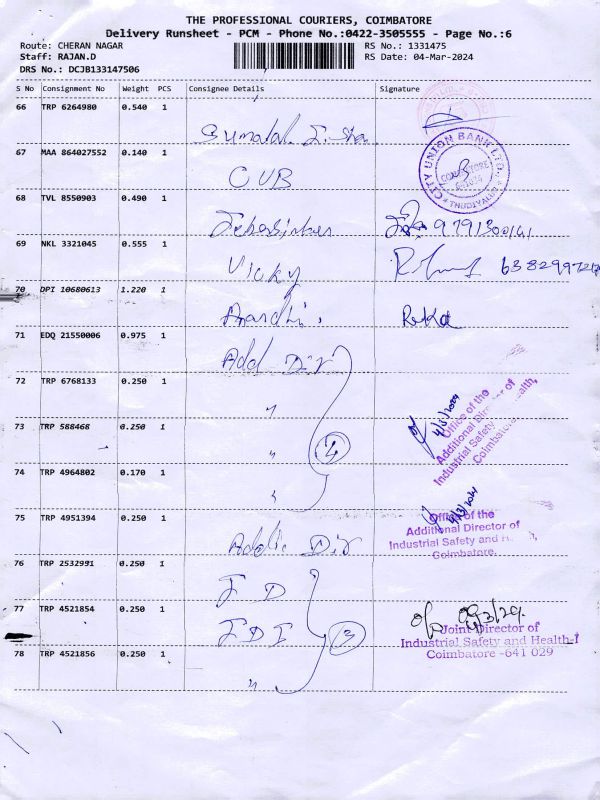 THE PROFESSIONAL COURIERS, COIMBATORE
Delivery Runsheet - PCM - Phone No.:0422-3505555 - Page No.:6
Route: CHERAN NAGAR RS No.: 1331475
Staff: RAJAN.D RS Date: 04-Mar-2024
DRS No.: DCJB133147506
S No Consignment No Weight PCS Consignee Details Signature
66 TRP 6264980 0.540 1
67 MAA 864027552 0.140 1
CUB
CITY UNION BANK LTD.
COIMBATORE
641029
THUDIYALUR
68 TVL 8550903 0.490 1
69 NKL 3321045 0.555 1
Vicky
70 DPI 10680613 1.220 1
Anandhi Reka
71 EDQ 21550006 0.975 1
Add Dir
72 TRP 6768133 0.250 1
"
4/3/2024
Office of the
Additional Director of
Industrial Safety and Health,
Coimbatore.
73 TRP 588468 0.250 1
"
4
74 TRP 4964802 0.170 1
"
75 TRP 4951394 0.250 1
Addl. Dir
4/3/2024
Office of the
Additional Director of
Industrial Safety and H
Coimbatore.
76 TRP 2532991 0.250 1
J D
77 TRP 4521854 0.250 1
3
Joint Director of
Industrial Safety and Health-I
Coimbatore -641 029
78 TRP 4521856 0.250 1
"